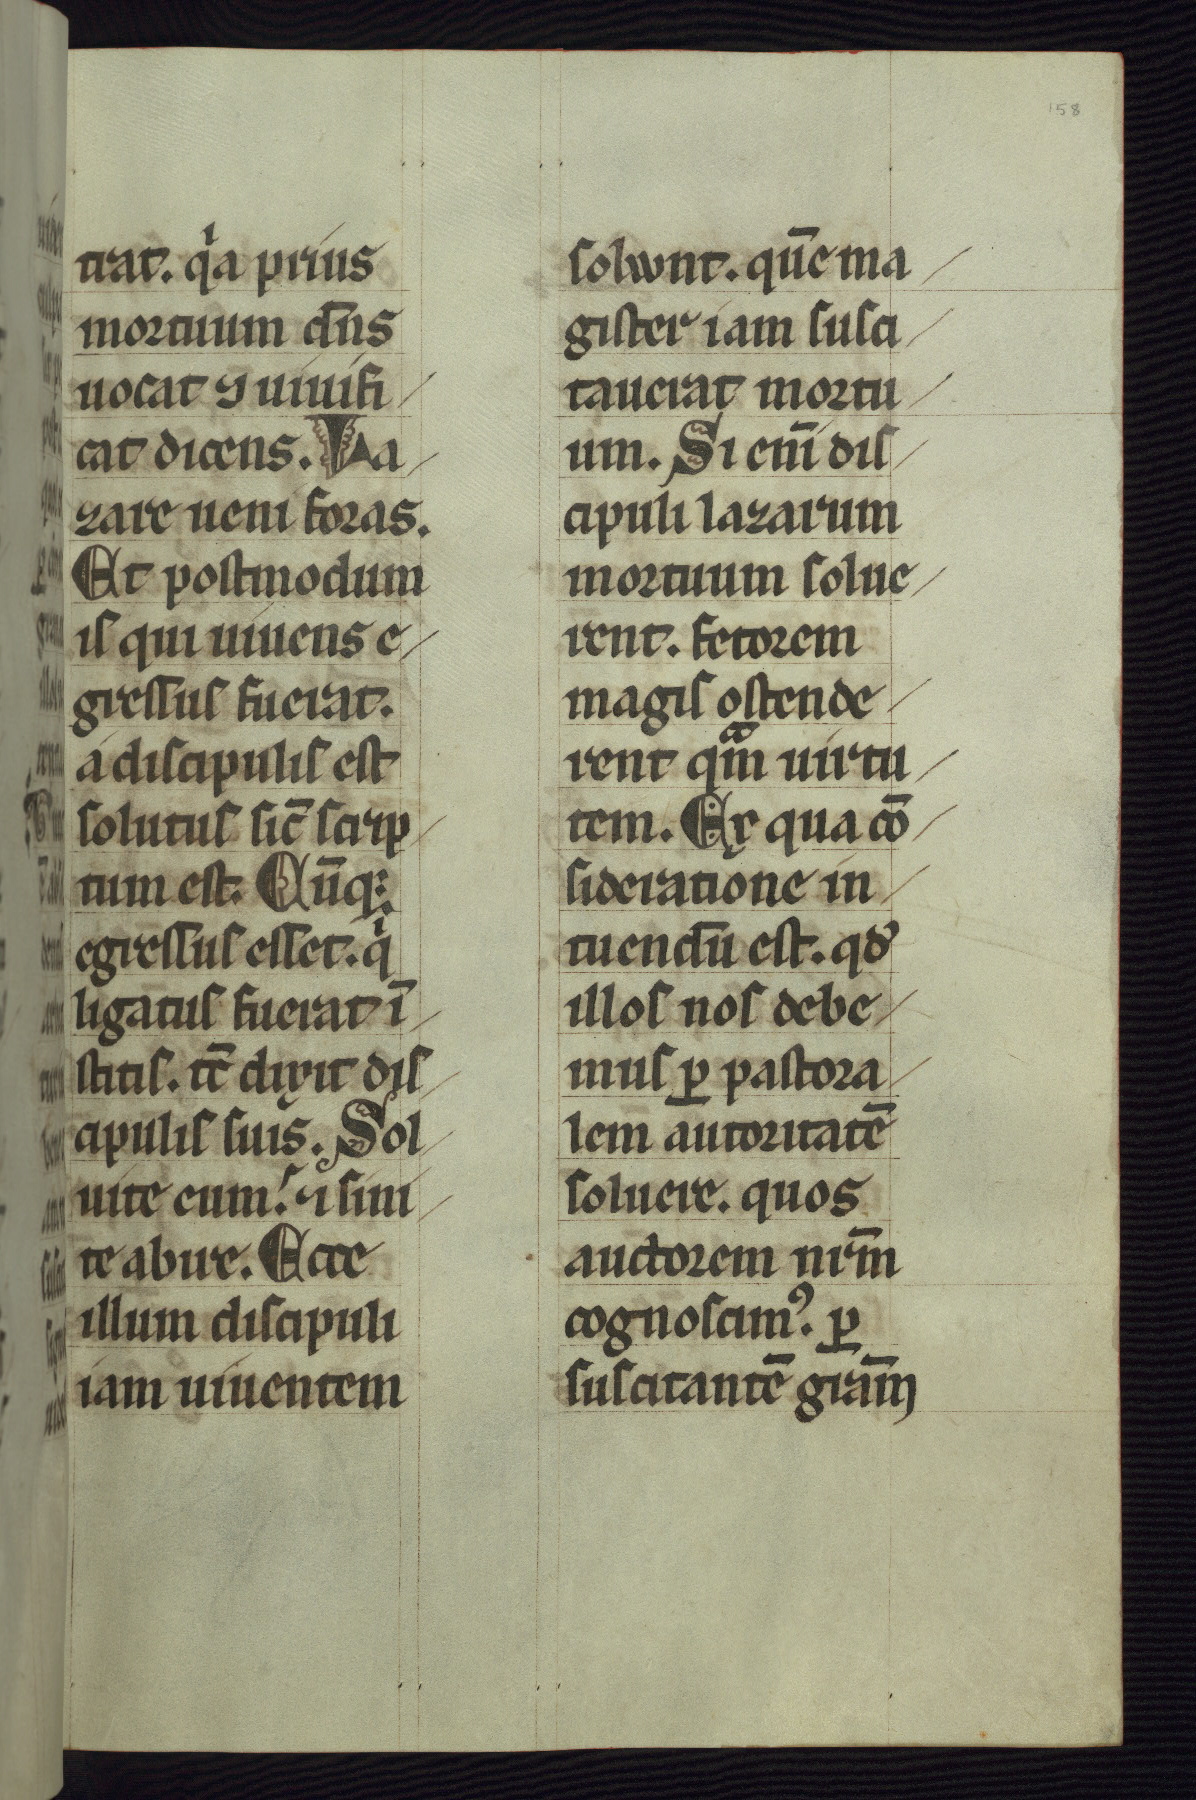 158
trat. qⁱa prius
mortuum dn̄s
uocat ⁊ uiuifi
cat dicens. La
zare ueni foras.
Et postmodum
is qui uiuens e
gressus fuerat.
a discipulis est
solutus sic̄ scrip
tum est. Cūq;
egressus esset. qⁱ
ligatus fuerat ī
stitis. tc̄ dixit dis
cipulis suis. Sol
uite eum. ⁊ sini
te abire. Ecce
illum discipuli
iam uiuentem
soluunt. quē ma
gister iam susci
tauerat mortu
um. Si eni̅ dis
cipuli lazarum
mortuum solue
rent. fetorem
magis ostende
rent qᵃm uirtu
tem. Ex qua cō
sideratione in
tuendū est. qd̛
illos nos debe
mus ꝑ pastora
lem autoritatē
soluere. quos
auctorem nr̄m
cognoscimꝰ. ꝑ
suscitantē grām